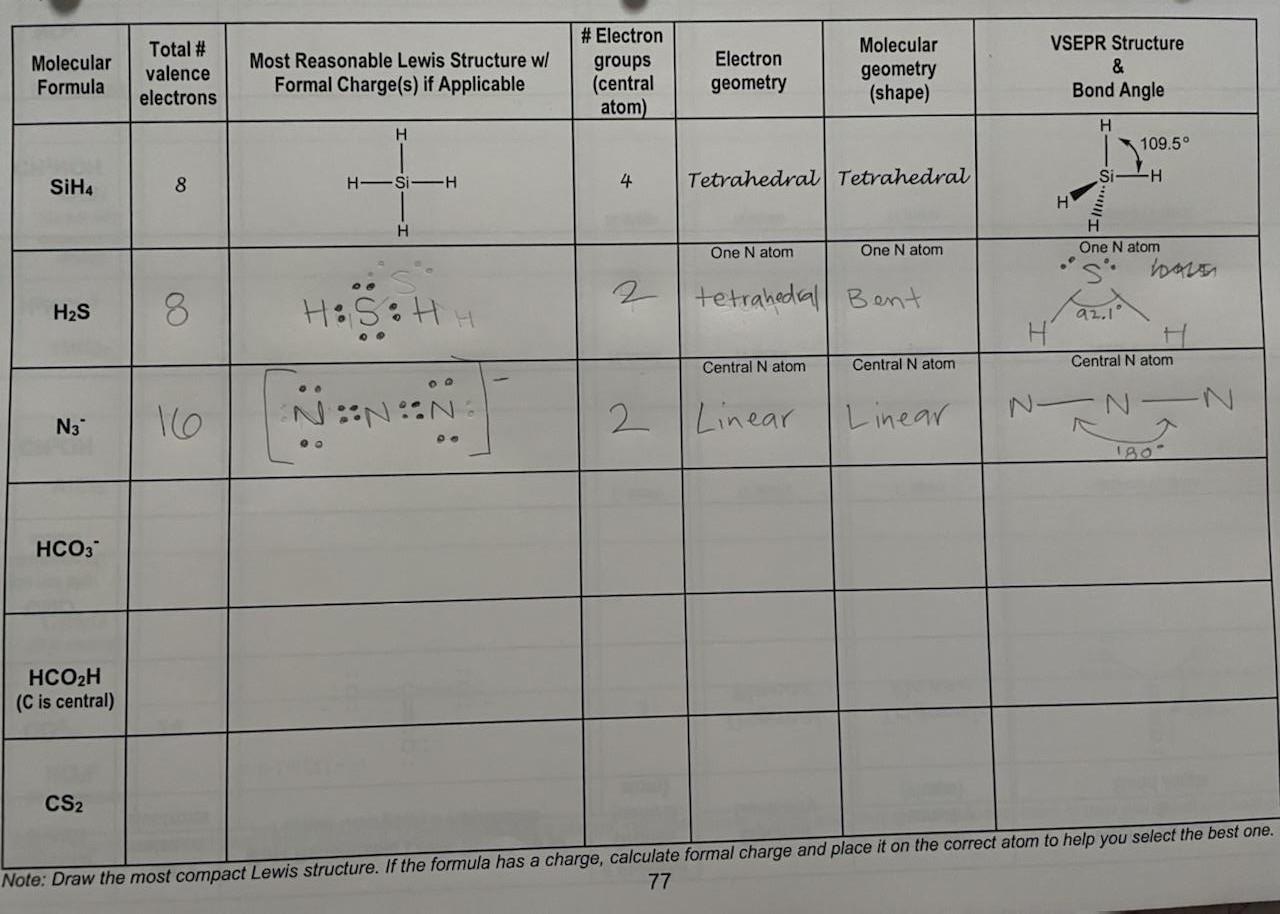 Molecular Formula
Total # valence electrons
Most Reasonable Lewis Structure w/ Formal Charge(s) if Applicable
# Electron groups (central atom)
Electron geometry
Molecular geometry (shape)
VSEPR Structure & Bond Angle
SiH₄
8
H
H—Si—H
H
4
Tetrahedral
Tetrahedral
H
109.5°
Si—H
H
H
H₂S
8
S
H:S:H H
2
One N atom
tetrahedral
One N atom
Bent
One N atom
S
92.1°
H H
N₃⁻
16
[N::N::N:]⁻
2
Central N atom
Linear
Central N atom
Linear
Central N atom
N—N—N
180°
HCO₃⁻
HCO₂H
(C is central)
CS₂
Note: Draw the most compact Lewis structure. If the formula has a charge, calculate formal charge and place it on the correct atom to help you select the best one.
77